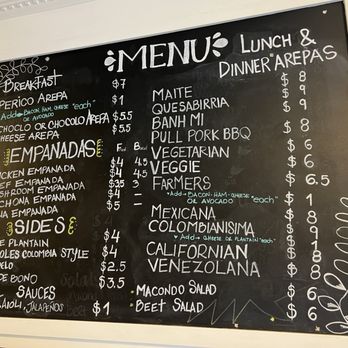 MENU
BREAKFAST
PERICO AREPA $7
Add-BACON, HAM, CHEESE "each" $1
OR AVOCADO
CHOCLO OR CHOCOLO AREPA $5.5
CHEESE AREPA $5.5
EMPANADAS
CHICKEN EMPANADA $4 4.5
BEEF EMPANADA $4 4.5
MUSHROOM EMPANADA $3.5
EMPANADA $4
SIDES
PLANTAIN $4
COLOMBIA STYLE $4
$2.5
DE BONO $3.5
SAUCES
AIOLI, JALAPEÑOS $1
LUNCH &
DINNER AREPAS
MAITE $8
QUESABIRRIA $9
BANH MI $9
PULL PORK BBQ $8
VEGETARIAN
VEGGIE
FARMERS $6.5
Add-BACON-HAM-CHEESE "each" $1
OR AVOCADO
MEXICANA $8
COLOMBIANISIMA $9
Add CHEESE OR PLANTAIN "each"
CALIFORNIAN $8
VENEZOLANA
MACONDO SALAD
BEET SALAD $6